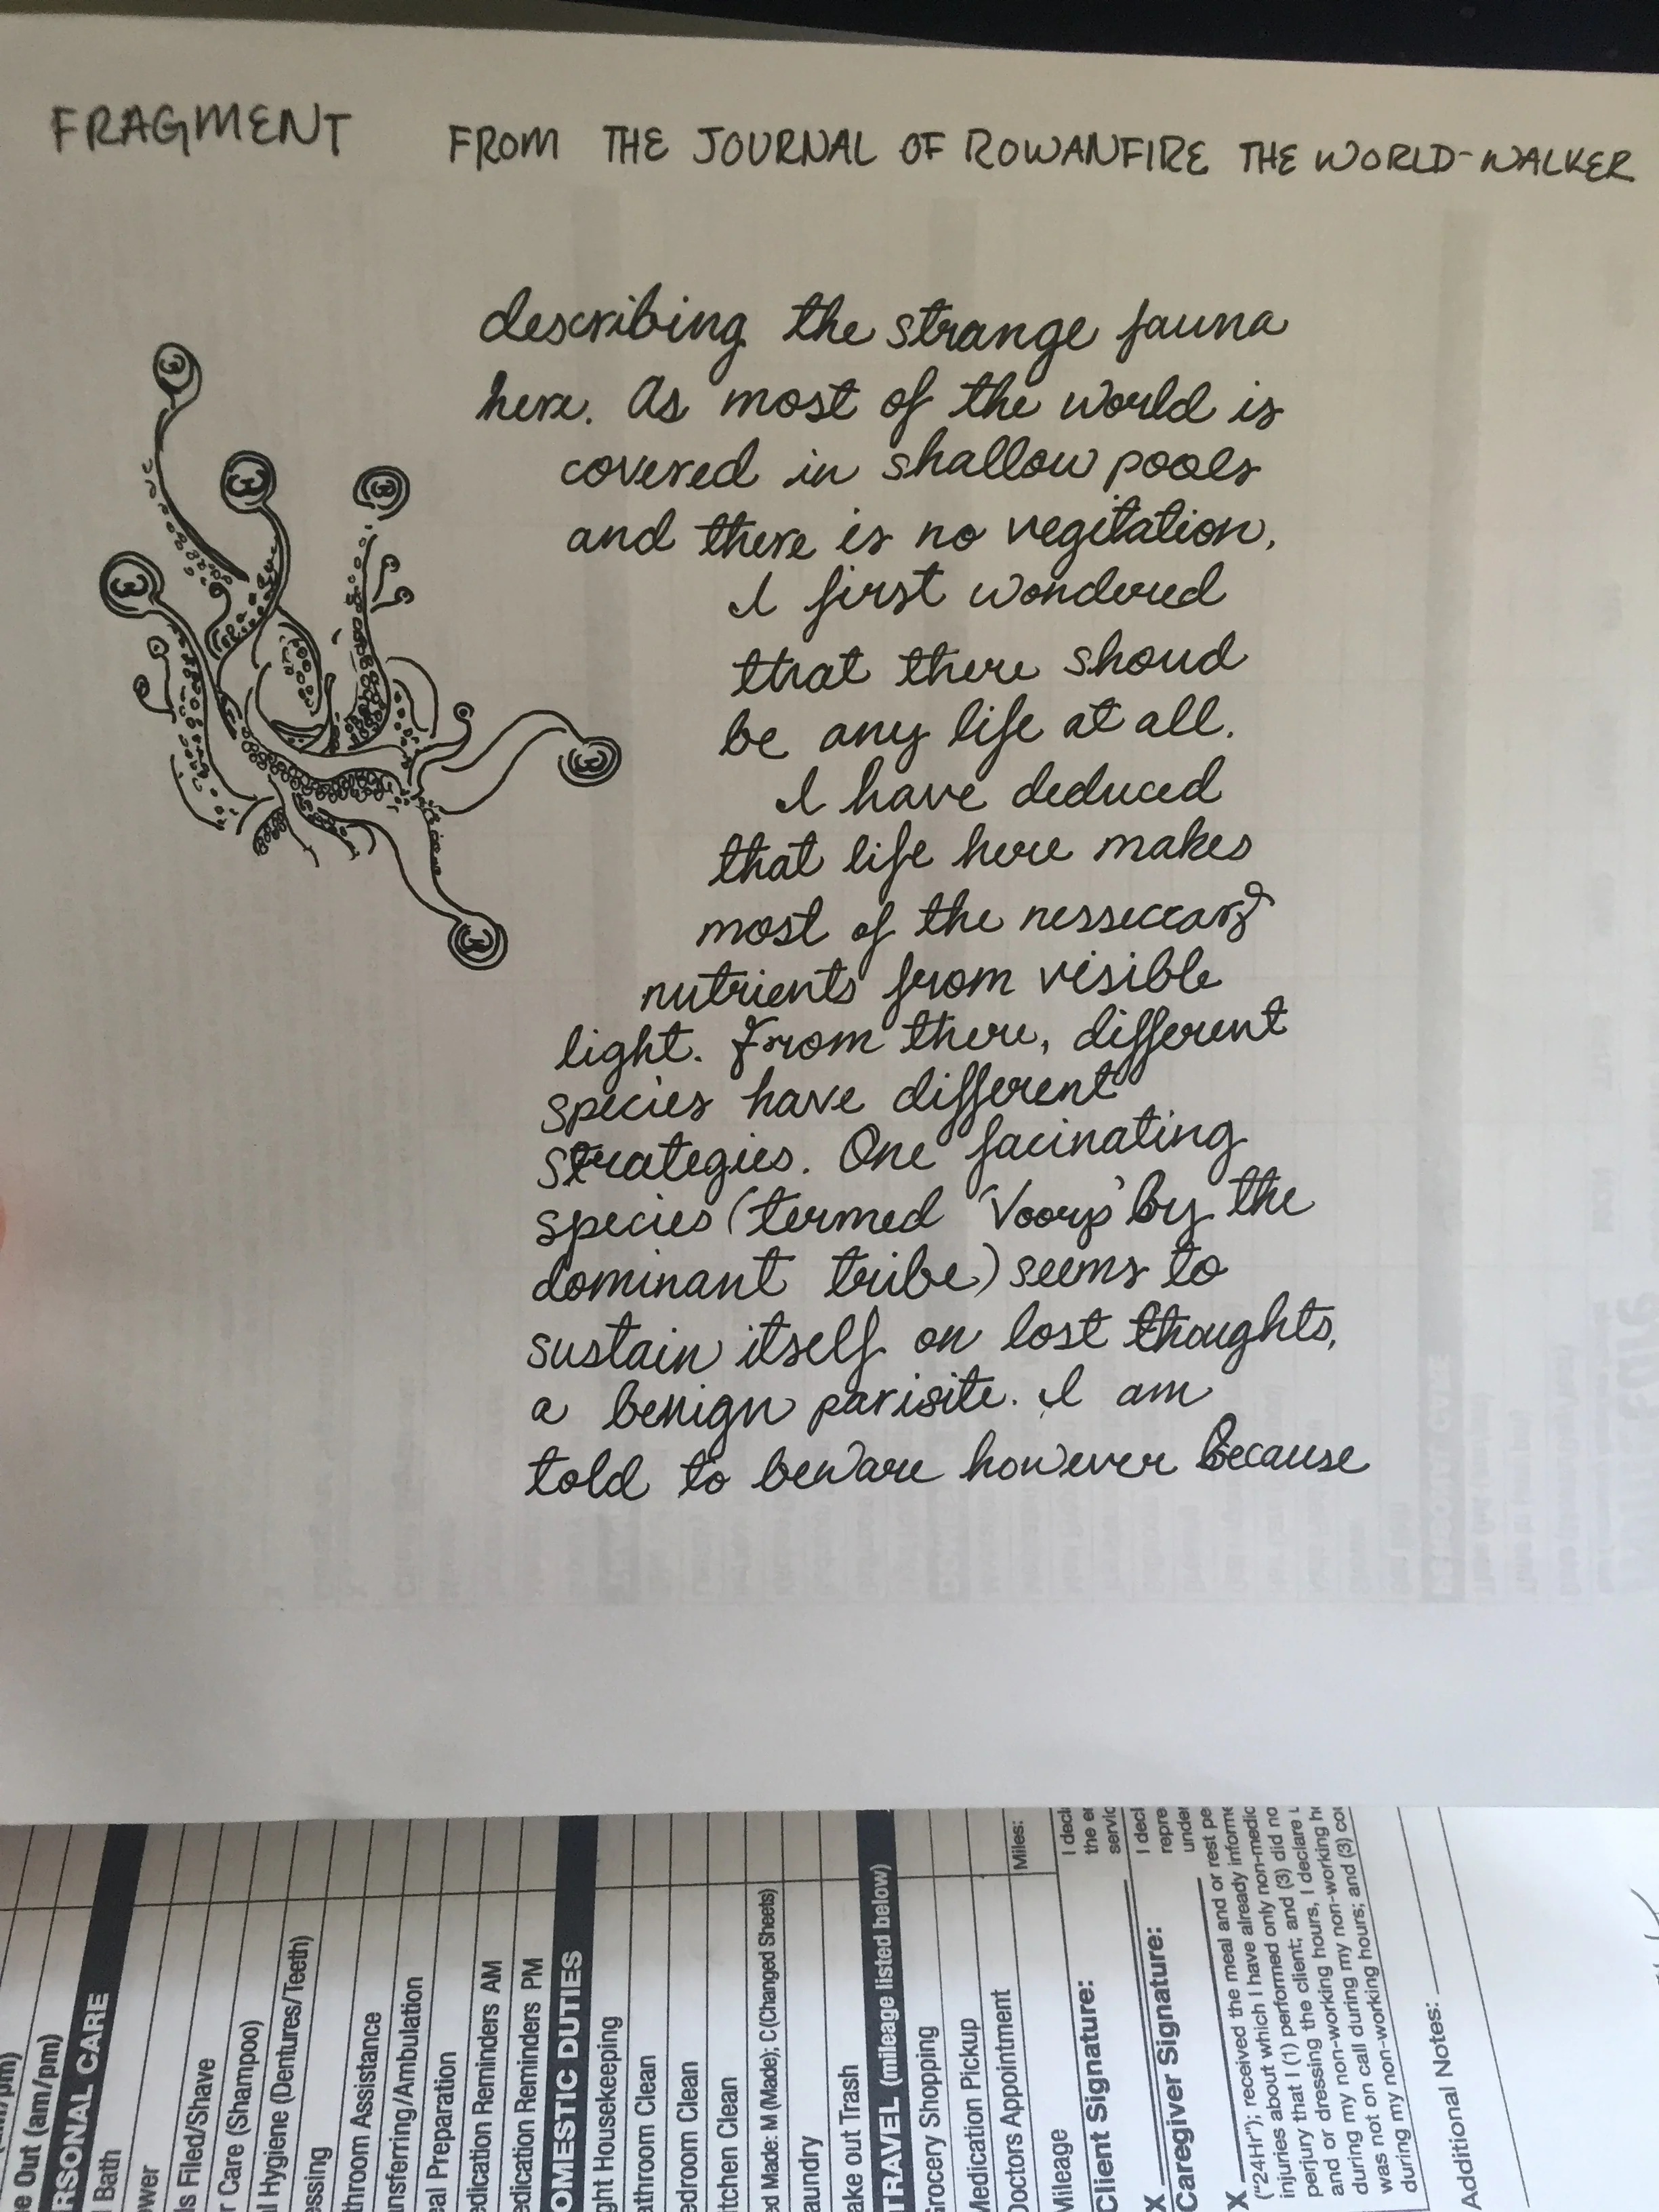 FRAGMENT FROM THE JOURNAL OF ROWANFIRE THE WORLD-WALKER
describing the strange fauna
here. As most of the world is
covered in shallow pools
and there is no vegitation,
I first wondered
that there shoud
be any life at all.
I have deduced
that life here makes
most of the nesseccary
nutrients from visible
light. From there, different
species have different
strategies. One facinating
species (termed 'Voorp' by the
dominant tribe) seems to
sustain itself on lost thoughts,
a benign parisite. I am
told to beware however because
Out (am/pm)
RSONAL CARE
Bath
ower
ls Filed/Shave
r Care (Shampoo)
l Hygiene (Dentures/Teeth)
essing
throom Assistance
ansferring/Ambulation
eal Preparation
edication Reminders AM
edication Reminders PM
OMESTIC DUTIES
ght Housekeeping
athroom Clean
edroom Clean
itchen Clean
ed Made: M (Made); C (Changed Sheets)
aundry
ake out Trash
TRAVEL (mileage listed below)
Grocery Shopping
Medication Pickup
Doctors Appointment
Mileage
Miles:
Client Signature:
X
Caregiver Signature:
X
I decl
the e
servic
I decl
repre
unde
("24Hr"); received the meal and or rest pe
injuries about which I have already informe
perjury that I (1) performed only non-medic
and or dressing the client; and (3) did no
during my non-working hours, I declare
was not on call during my non-working h
during my non-working hours; and (3) co
Additional Notes: